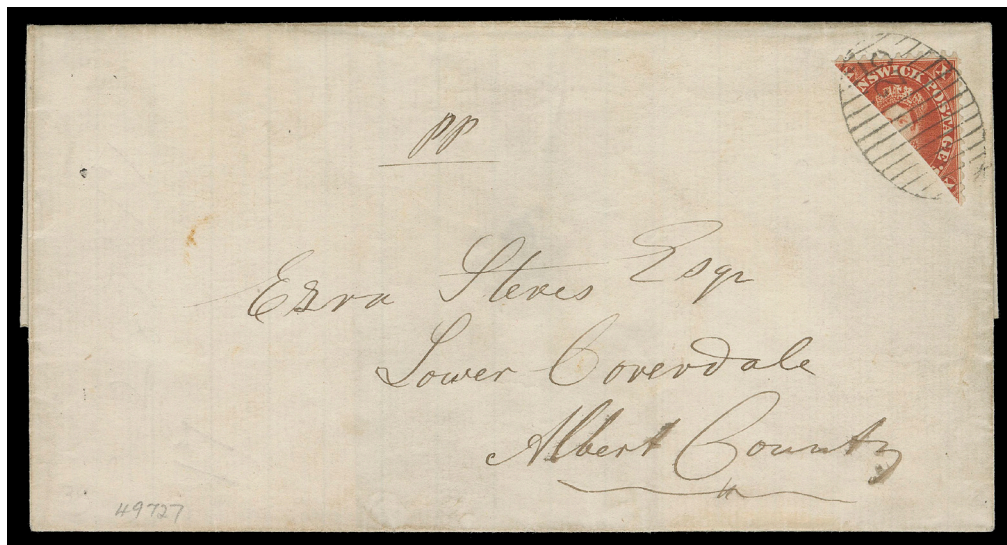 NSWICK POSTAGE
pp
Ezra Steves Esqr
Lower Coverdale
Albert County
49727